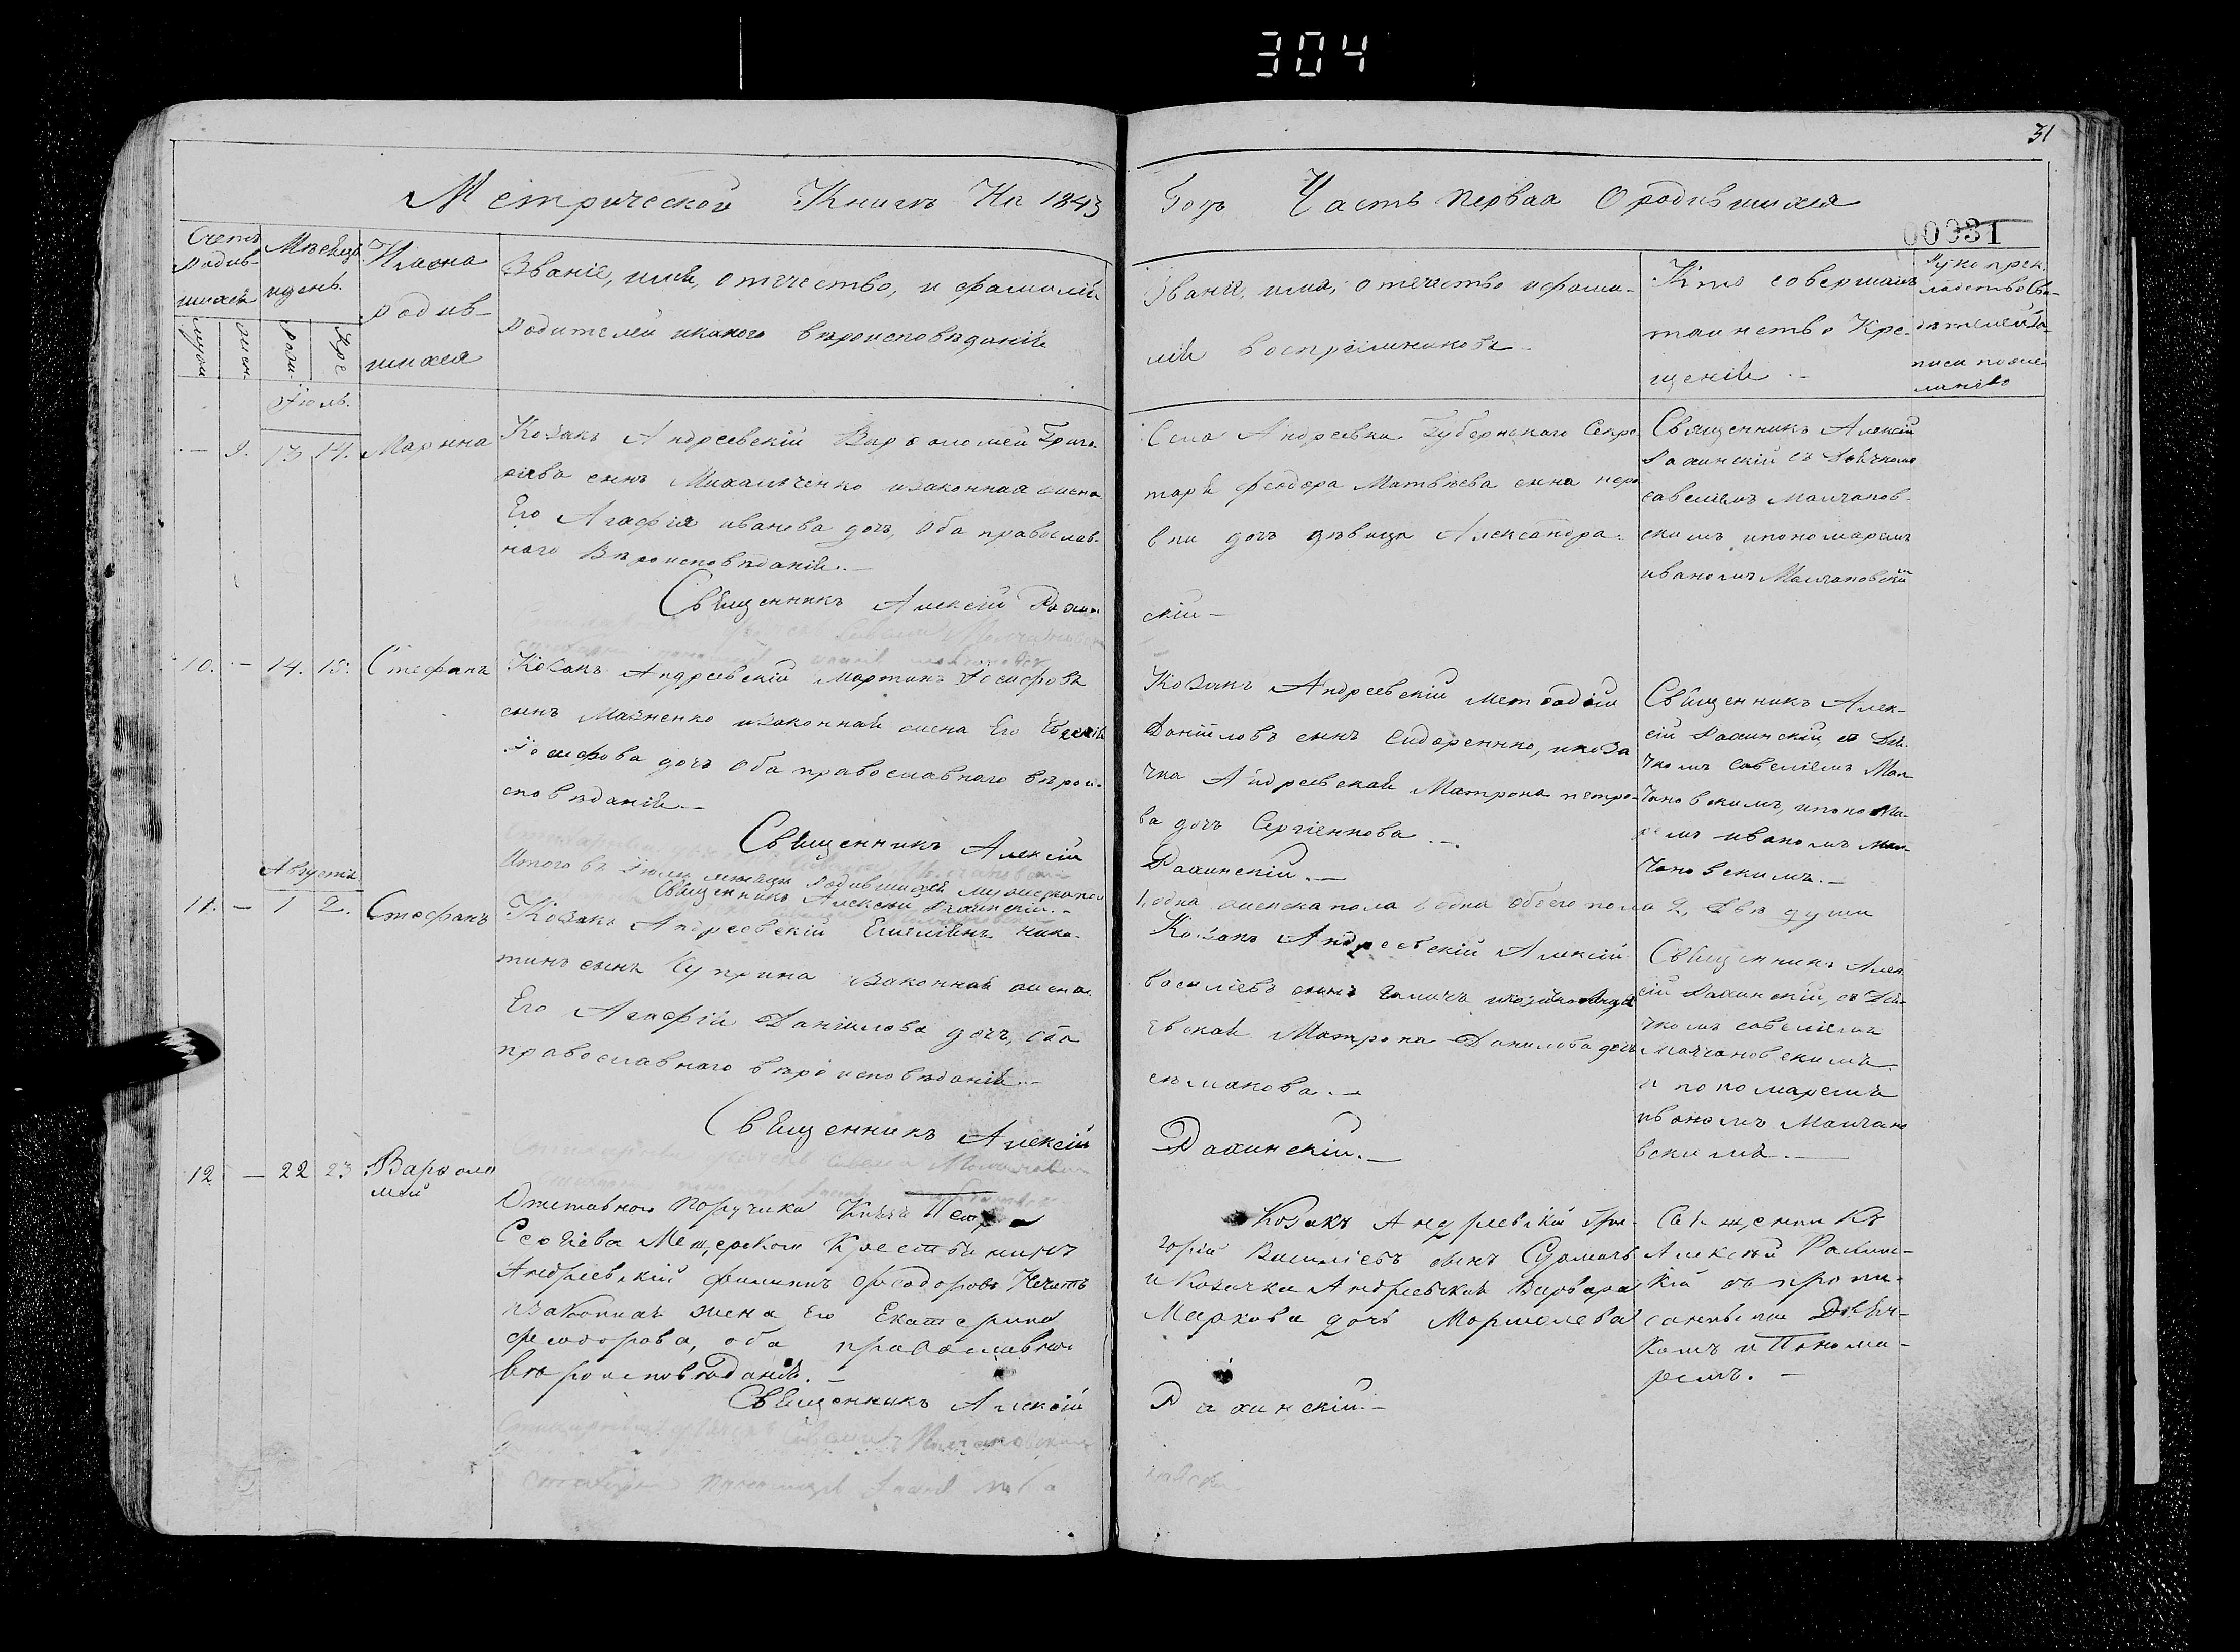 304
31
Метрической Книги На 1843
Годъ Часть первая О родившихся
00031
Счетъ родив-шихся
Мѣсяцъ и день
Имена родив-шихся
Званіе, имя, отечество, и фамилія
родителей и какого вѣроисповѣданія
Званіе, имя, отечество и фами-
лія воспріемниковъ
Кто совершалъ
таинство Кре-
щенія
мужеск.
женск.
рожд.
Кре
Іюль.
— 9. 13 14. Марина
Козакъ Андреевскій Варѳоломей Григо-
ріевъ сынъ Михальченко и законная жена
Его Агафія иванова дочь, Оба православ-
наго Вѣроисповѣданія.—
Священникъ Алексій Рахин-
скій —
Села Андреевки Губернскаго Секре-
таря Феодора Матвѣева сына
дочь дѣвица Александра.
Священникъ Алексій
Рахинскій съ Дьячкомъ
савеліемъ Молчанов-
скимъ и пономаремъ
иваномъ Молчановский
10. — 14. 15. Стефанъ
Козакъ Андреевскій Мартинъ Іосифовъ
сынъ и законная жена Его
Іосифова дочь Оба православнаго вѣрои-
сповѣданія.—
Священникъ Алексій
Рахинскій.—
Козакъ Андреевскій Меѳодій
Даніиловъ сынъ Сидоренко, и коза
чка Андреевская Матрона петро-
ва дочь Сергіенкова.—
Священникъ Алек-
сій Рахинскій, съ Дья-
чкомъ савеліемъ Мол-
чановскимъ, и понома-
ремъ иваномъ Мол-
чановскимъ.—
Итого въ Іюлѣ мѣсяцѣ Родившихся мужеска пол
1, одна женска пола 1, одна обоего пола 2, двѣ души
Священникъ Алексій Рахинскій.—
Августъ
11. — 1 2. Стефанъ
Козакъ Андреевскій Емеліянъ Ники-
тинъ сынъ Куприна и законная жена
Его Агафія Даніилова дочь, Оба
православнаго вѣроисповѣданія.—
Священникъ Алексій
Рахинскій.—
Козакъ Андреевскій Алексій
василіевъ сынъ
евская Матрона Данилова дочь
Священникъ Алек
сій Рахинскій, съ Дья-
чкомъ савеліемъ
Молчановскимъ
и пономаремъ
иваномъ Молчано
вскимъ.—
12 — 22 23 Варѳоло
мей
Отставнаго Поручика Князя Петра
Сергіева Мещерскаго Крестьянинъ
Андреевскій филиппъ Ѳеодоровъ
и законная жена Его Екатерина
феодорова, оба православнаго
вѣроисповѣданія.—
Священникъ Алексій
Рахинскій.—
Козакъ Андреевскій Гри-
горій Василіевъ сынъ
и Козачка Андреевская Варвара
Маркова дочь
Священникъ
Алексѣй Рахин-
скій съ пропи-
санными Дьяч-
комъ и Понома-
ремъ.—